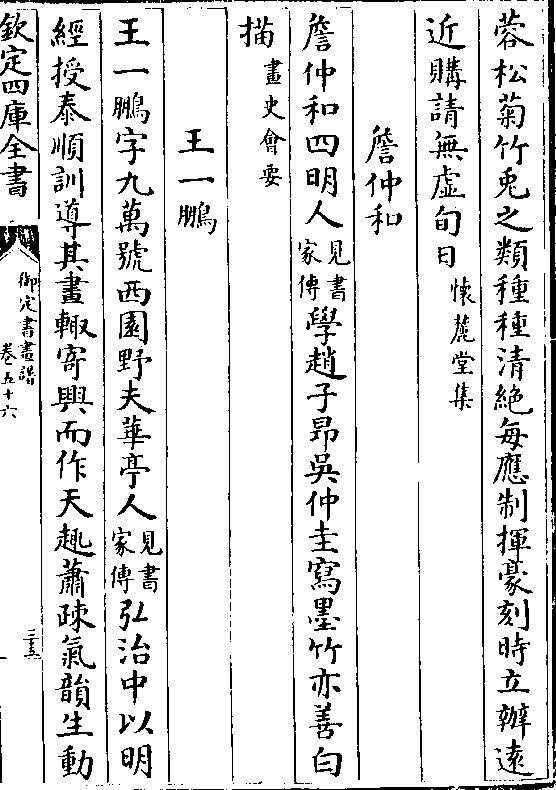 蓉松菊竹兎之類種種清絶每應制揮豪刻時立辦逺
近購請無虚旬日懷麓堂集
詹仲和
詹仲和四明人見書家傳學趙子昂吳仲圭寫墨竹亦善白
描畫史會要
王一鵬
王一鵬字九萬號西園野夫華亭人見書家傳弘治中以明
經授泰順訓導其畫輙寄興而作天趣蕭疎氣韻生動
欽定四庫全書
御定書畫譜
卷五十六
三五